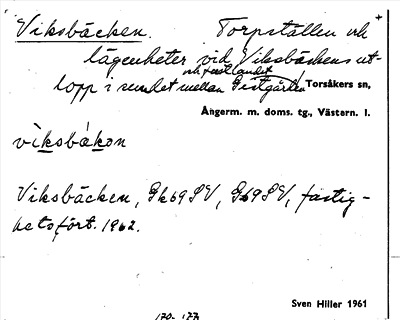 Viksbäcken. Torpställen och
lägenheter vid Viksbäckens ut-
och fastlandet
lopp i sundet mellan Gistgården Torsåkers sn,
Ångerm. m. doms. tg., Västern. l.
viksbäkən
Viksbäcken, Gk69SV, G69SV, fastig-
hetsfört. 1962.
Sven Hiller 1961